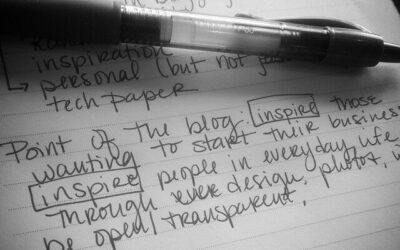 inspiration
personal (but not
tech paper
Point of the blog: inspire those
wanting to start their business
inspire people in everyday life
Through design, photos,
be open/transparent,